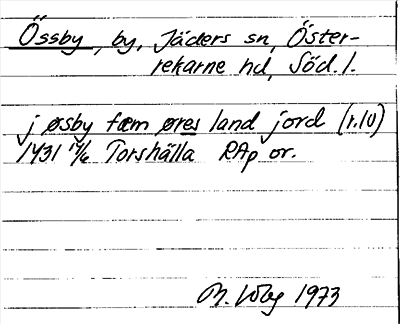 Össby, by, Jäders sn, Öster-
rekarne hd, Söd. l.
j øsby fæm øres land jord (r.10)
1431 17/6 Torshälla RAp or.
M. 1973